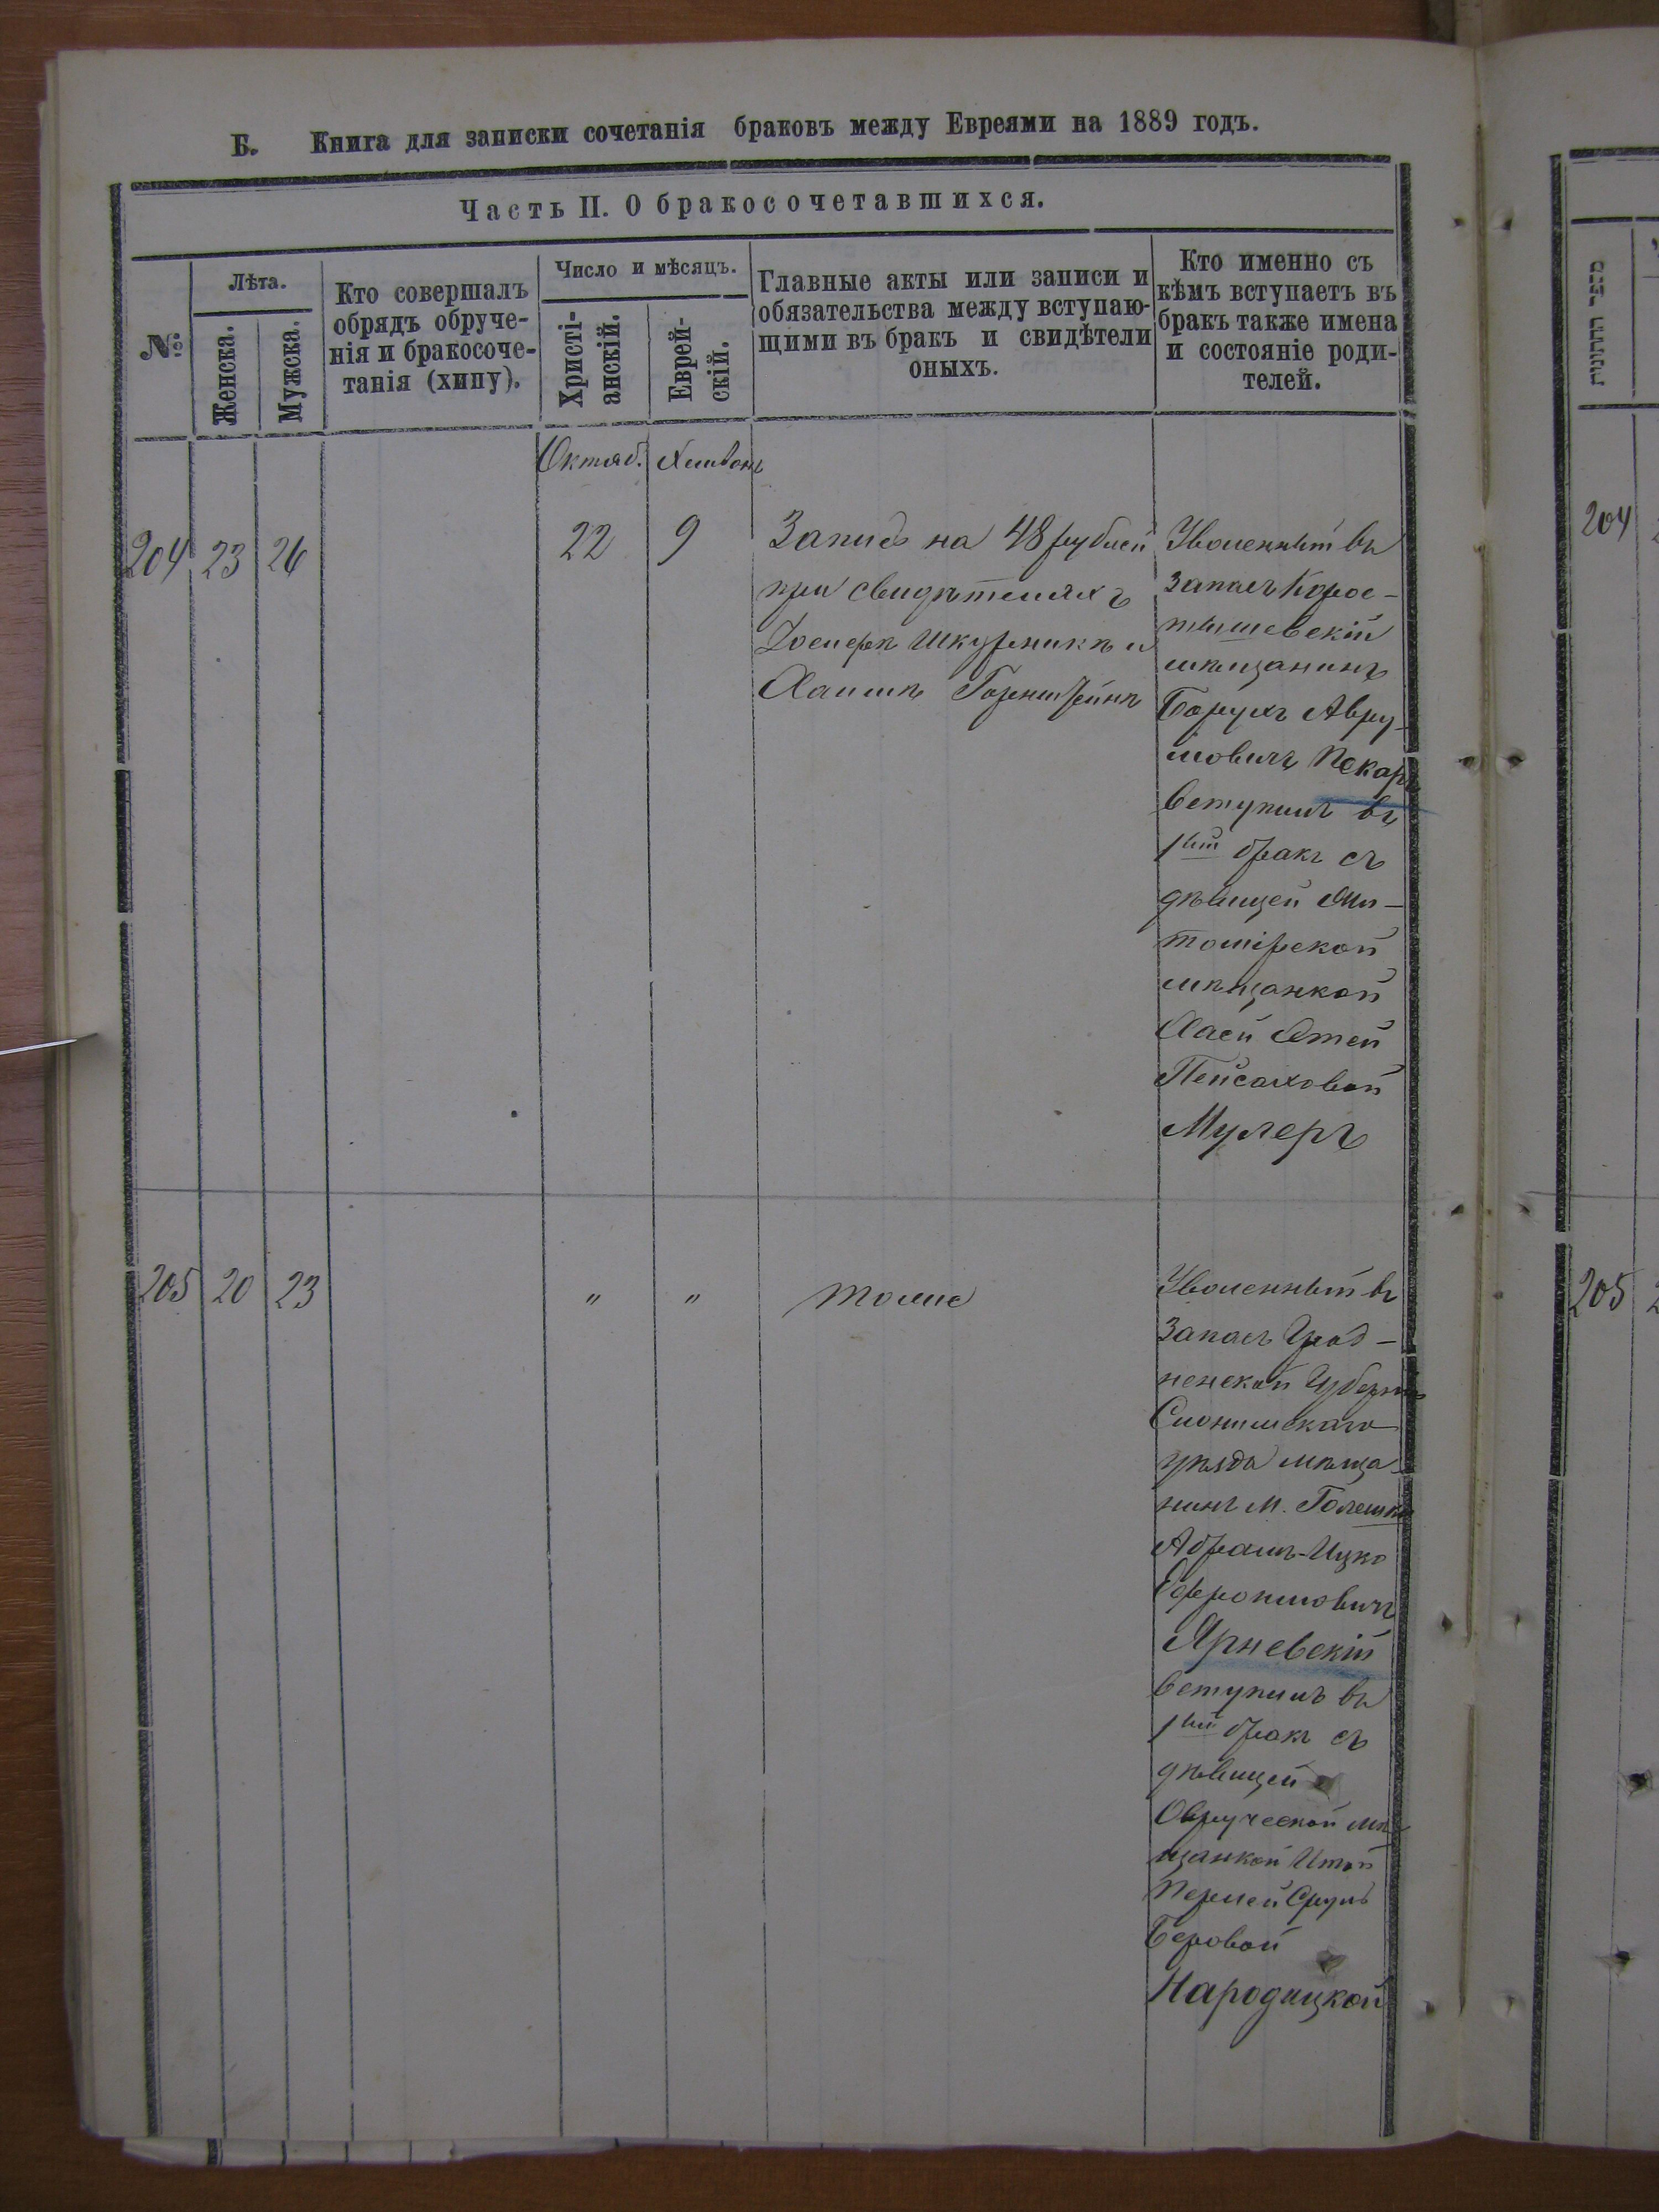 Б. Книга для записки сочетанія браковъ между Евреями на 1889 годъ.
Часть II. О бракосочетавшихся.
№
Лѣта.
Женска.
Мужска.
Кто совершалъ
обрядъ обруче-
нія и бракосоче-
танія (хипу).
Число и мѣсяцъ.
Христі-
анскій.
Еврей-
скій.
Главные акты или записи и
обязательства между вступаю-
щими въ бракъ и свидѣтели
оныхъ.
Кто именно съ
кѣмъ вступаетъ въ
бракъ также имена
и состояніе роди-
телей.
Октяб. Хешвонъ
204 23 26 22 9
Запись на 48 рублей
при свидѣтеляхъ
Іосифѣ Шкурникѣ и
Хаимѣ Горнштейнѣ
Уволенный въ
запасъ Корос-
тышевскій
мѣщанинъ
Борухъ Авру-
мовичъ Пекарь
вступилъ въ
1ый бракъ съ
дѣвицей Жи-
томірской
мѣщанкой
Хаей Этей
Пейсаховой
Мулеръ
205 20 23 " " тоже
Уволенный въ
Запасъ Грод-
ненской Губерніи
Слонимскаго
уѣзда мѣща-
нинъ м. Голынки
Абрамъ-Ицко
Ефроимовичъ
Ярневскій
вступилъ въ
1ый бракъ съ
дѣвицей
Овручской мѣ-
щанкой Итой
Перлей Сруль
Беровой
Народицкой
מספר החתונות
204
205